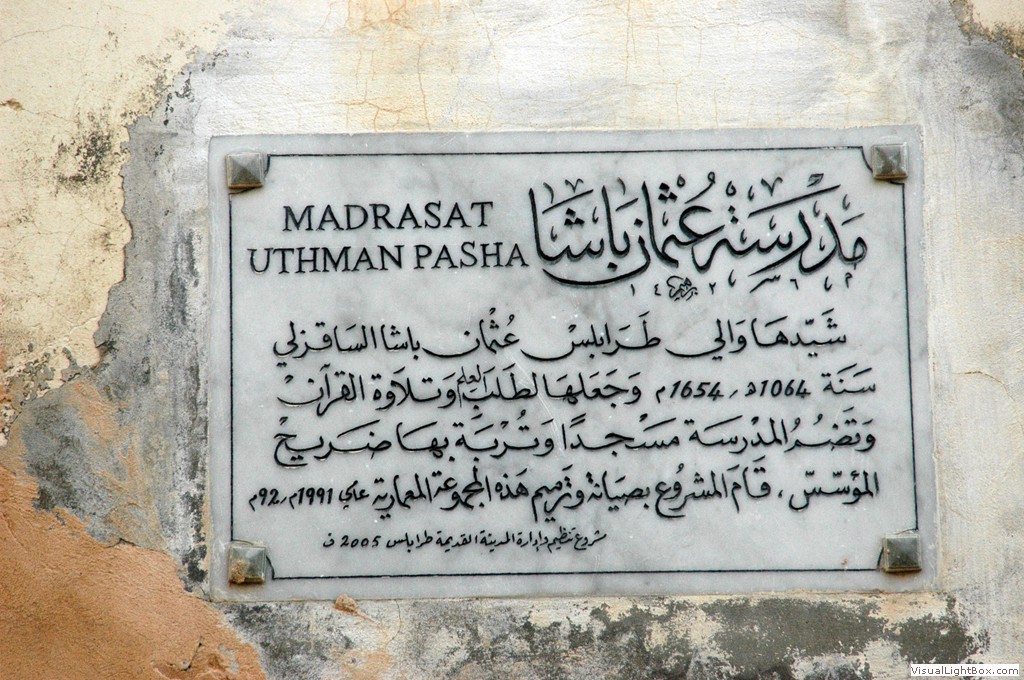 MADRASAT
UTHMAN PASHA
مَدْرَسَة عُثْمَان بَاشَا
شَيّدهَا وَالي طَرَابلسْ عُثْمان باشا الساقزلي
سَنَة 1064هـ/1654م وَجَعَلهَا لطَلَبِ العلم وَتلَاوَة القُرآنْ
وَتَضمُ المدْرسَة مَسْجدًا وَتُربَة بهَا ضَريحْ
المؤسّسْ، قَامَ المشروُع بصيَانة وَترميم هَذه المجموُعَة المعمارية عامي 1991م/92م
مشروع تنظيم وإدارة المدينة القديمة طرابلس 2005 ف
VisualLightBox.com